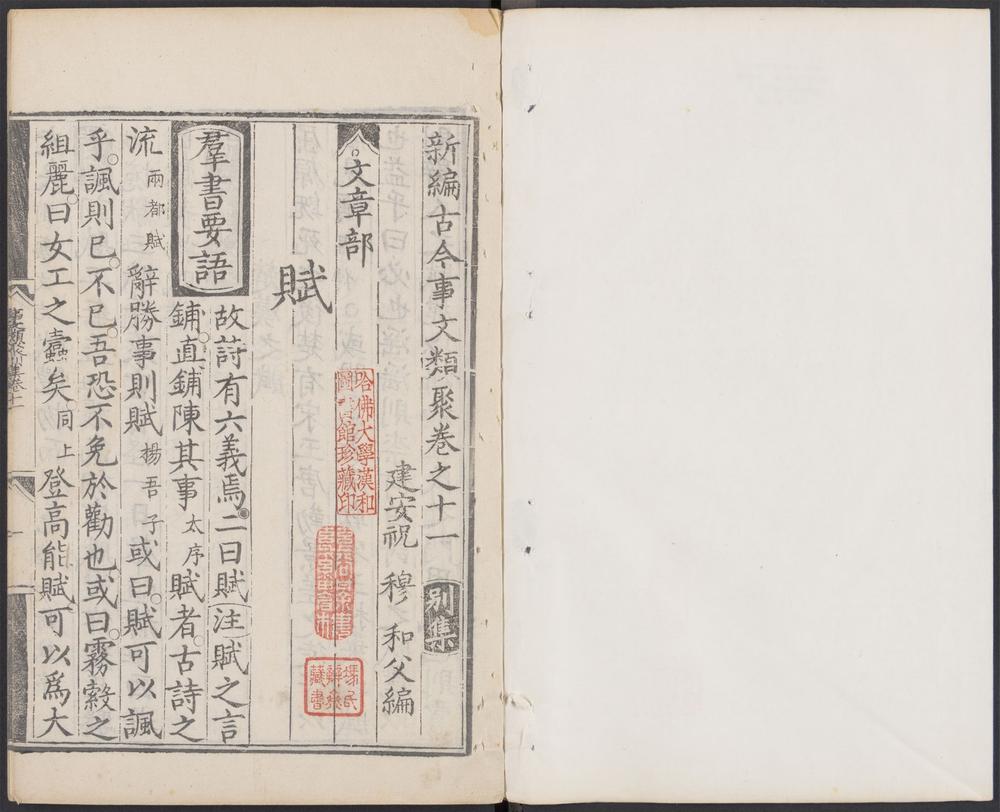 新編古今事文類聚卷之十一 別集
建安祝 穆 和父編
文章部
賦
羣書要語 故詩有六義焉二曰賦 注 賦之言
鋪直鋪陳其事 太序 賦者古詩之
流 兩都賦 辭勝事則賦 揚吾子 或曰賦可以諷
乎諷則已不已吾恐不免於勸也或曰霧縠之
組麗曰女工之蠹矣 同上 登高能賦可以爲大
哈佛大學漢和
圖書館珍藏印